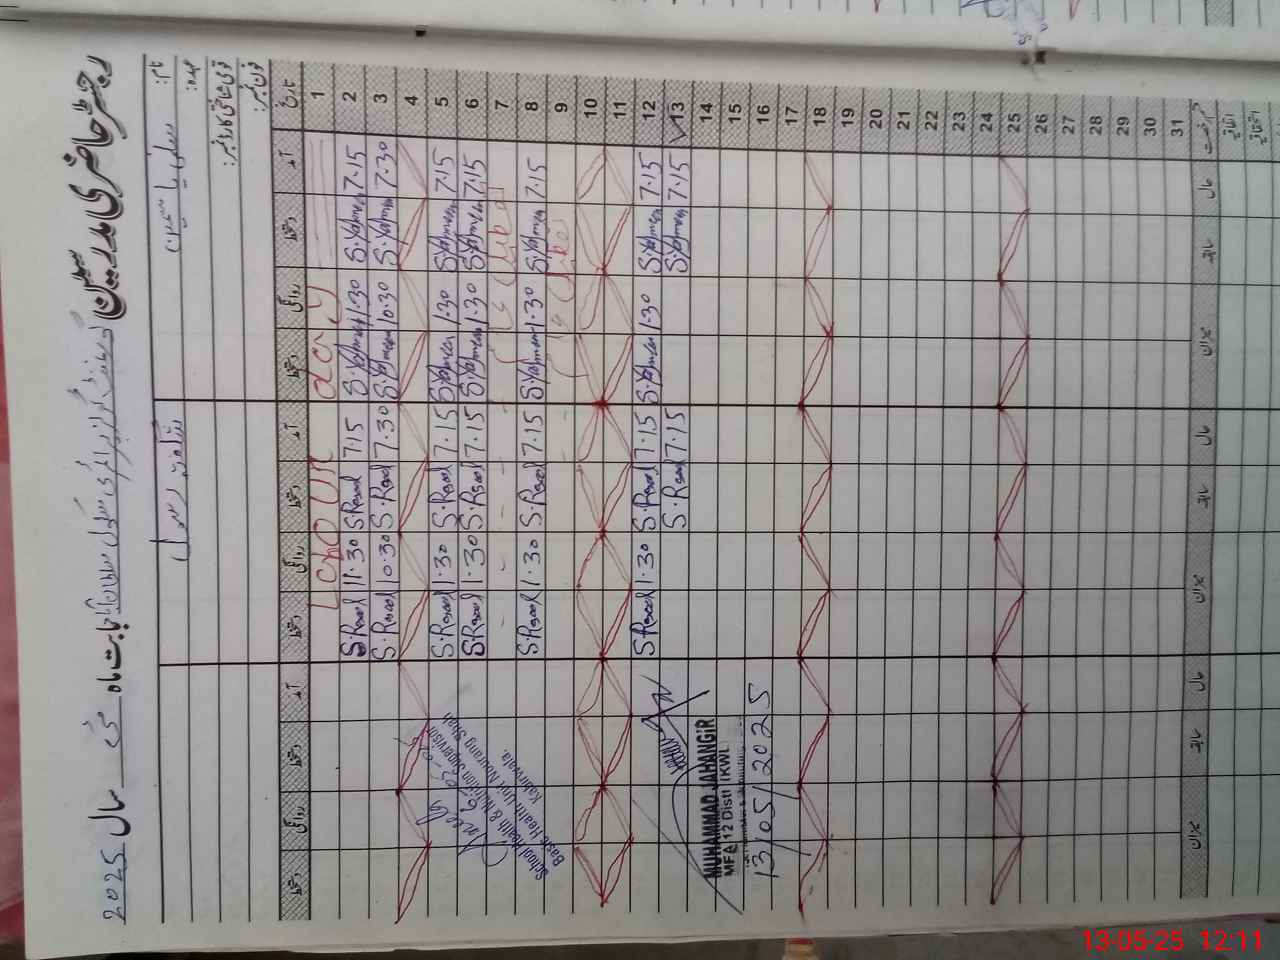 رجسٹر حاضری مدرسین گورنمنٹ گرلز پرائمری سکول بابت ماہ مئی سال 2025
نام:
عہدہ:
قومی شناختی کارڈ نمبر:
فون نمبر:
تاریخ آمد دستخط روانگی دستخط آمد دستخط روانگی دستخط آمد دستخط روانگی دستخط
1 Labour day
2 7.15 S.Yasmeen 1.30 S.Yasmeen 7.15 S.Rasool 1.30 S.Rasool
3 7.30 S.Yasmeen 10.30 S.Yasmeen 7.30 S.Rasool 10.30 S.Rasool
4
5 7.15 S.Yasmeen 1.30 S.Yasmeen 7.15 S.Rasool 1.30 S.Rasool
6 7.15 S.Yasmeen 1.30 S.Yasmeen 7.15 S.Rasool 1.30 S.Rasool
7
8 7.15 S.Yasmeen 1.30 S.Yasmeen 7.15 S.Rasool 1.30 S.Rasool
9
10
11
12 7.15 S.Yasmeen 1.30 S.Yasmeen 7.15 S.Rasool 1.30 S.Rasool
13 7.15 S.Yasmeen 7.15 S.Rasool
14
15
16
17
18
19
20
21
22
23
24
25
26
27
28
29
30
31
حال سابقہ میزان حال سابقہ میزان حال سابقہ میزان
اتفاقیہ
School Health & Nutrition Supervisor
Basic Health Unit Nourang Shah
Kabirwala.
MUHAMMAD JAHANGIR
MEA 12 Distt (KWL)
13/05/2025
13-05-25 12:11